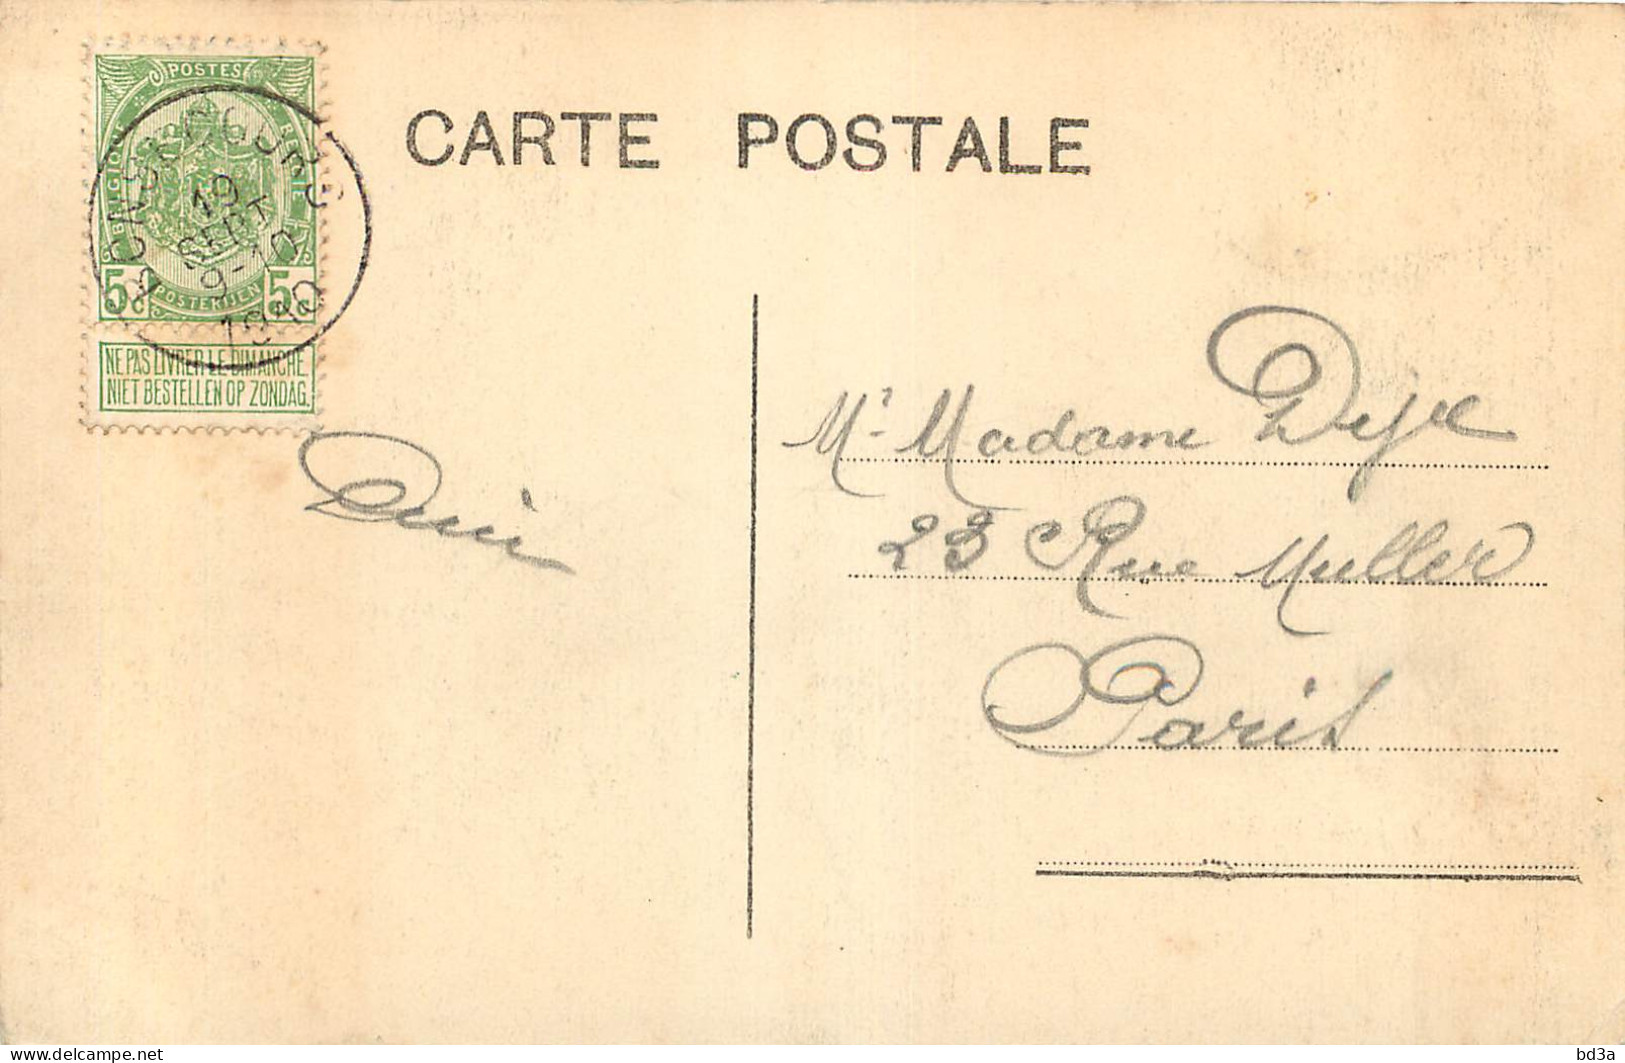 POSTES
BELGIQUE
BELGIE
5c 5c
POSTERIJEN
NE PAS LIVRER LE DIMANCHE
NIET BESTELLEN OP ZONDAG.
19
SEPT
9-10
1910
CARTE POSTALE
Mr Madame
23 Rue Muller
Paris
Delcampe.net
bd3a